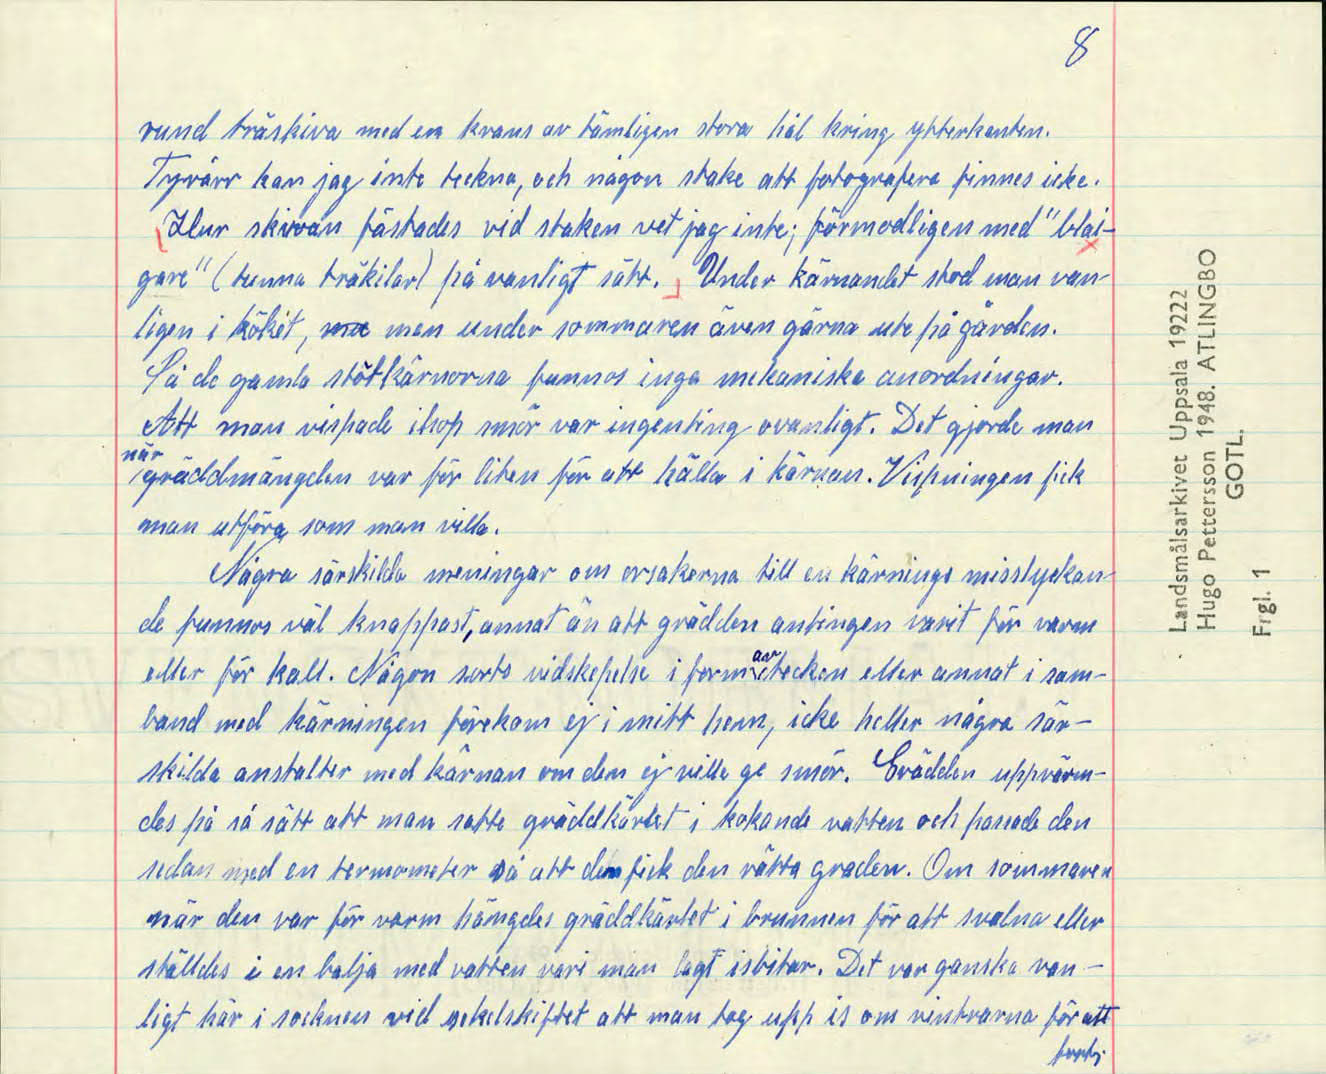 8
rund träskiva med en krans av tämligen stora hål kring ytterkanten.
Tyvärr kan jag inte teckna, och någon stake att fotografera finnes icke.
Hur skivan fästades vid staken vet jag inte; förmodligen med "blai-
gare" (tunna träkilar) på vanligt sätt. Under kärnandet stod man van-
ligen i köket, men under sommaren även gärna ute på gården.
På de gamla stötkärnorna funnos inga mekaniska anordningar.
Att man vispade ihop smör var ingenting ovanligt. Det gjorde man
när gräddmängden var för liten för att hälla i kärnan. Vispningen fick
man utföra som man ville.
Några särskilda meningar om orsakerna till en kärnings misslyckan-
de funnos väl knappast, annat än att grädden antingen varit för varm
eller för kall. Någon sorts vidskepelse i form av tecken eller annat i sam-
band med kärningen förekom ej i mitt hem, icke heller några sär-
skilda anstalter med kärnan om den ej ville ge smör. Grädden uppvärm-
des på så sätt att man satte gräddkärlet i kokande vatten och passade den
sedan med en termometer så att den fick den rätta graden. Om sommaren
när den var för varm hängdes gräddkärlet i brunnen för att svalna eller
ställdes i en balja med vatten vari man lagt isbitar. Det var ganska van-
ligt här i socknen vid sekelskiftet att man tog upp is om vintrarna för att
Landsmålsarkivet Uppsala 19222
Hugo Pettersson 1948. ATLINGBO
GOTL.
Frgl. 1